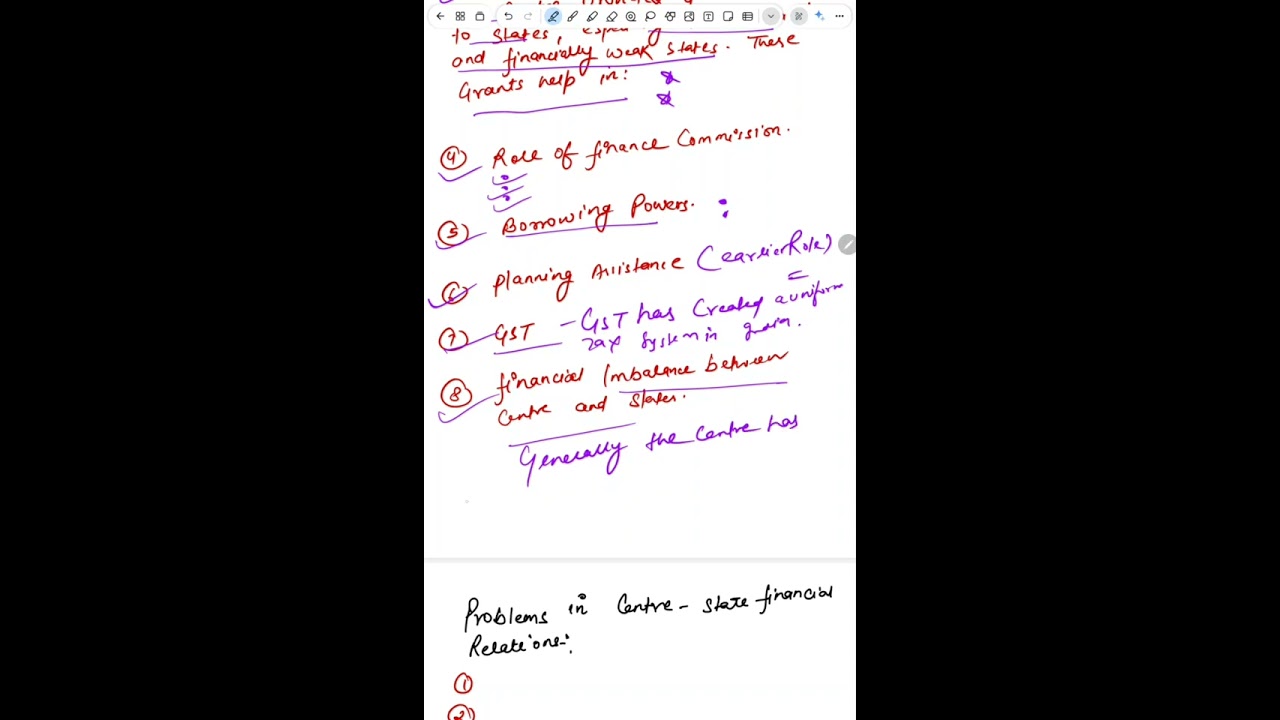 to states, espe
and financially weak states. These
Grants help in:
④ Role of finance Commission.
⑤ Borrowing Powers. :
⑥ Planning Assistance (earlier Role)
⑦ GST – GST has Created a uniform
tax system in India.
⑧ financial Imbalance between
Centre and states.
Generally the centre has
Problems in Centre - state financial
Relations:
①
②